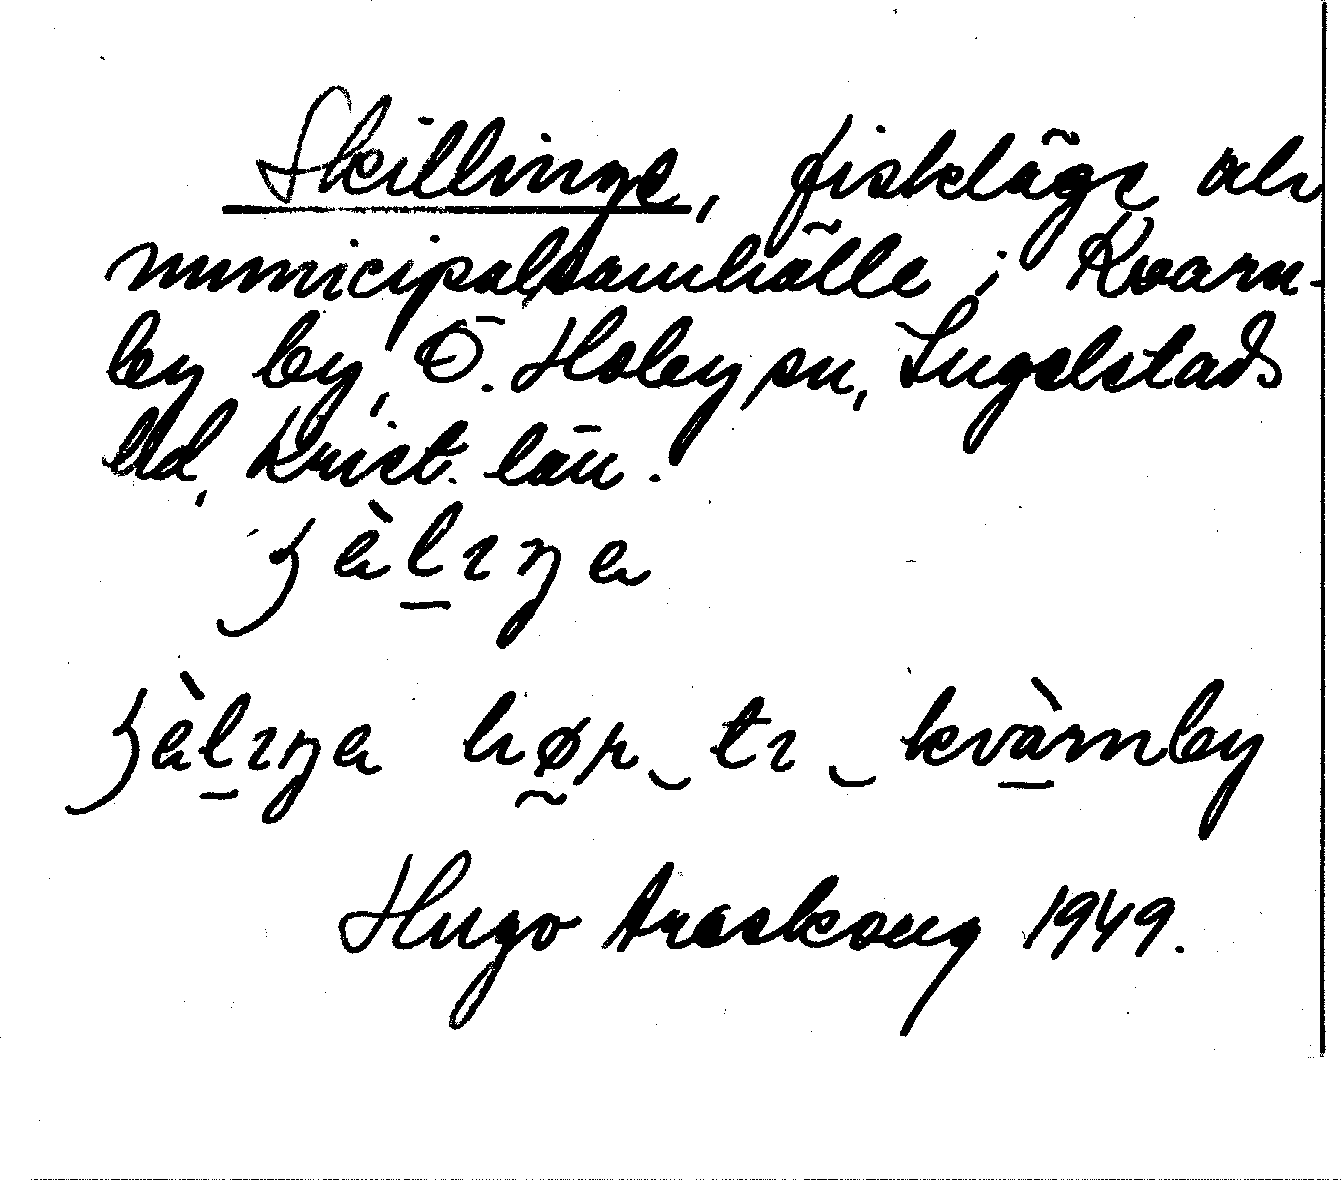 Skillinge, fiskläge och
municipalsamhälle i Kvarn-
by by, Ö. Hoby sn, Ingelstads
hd, Krist. län.
hør ti kvàrnby
Hugo Areskoug 1949.